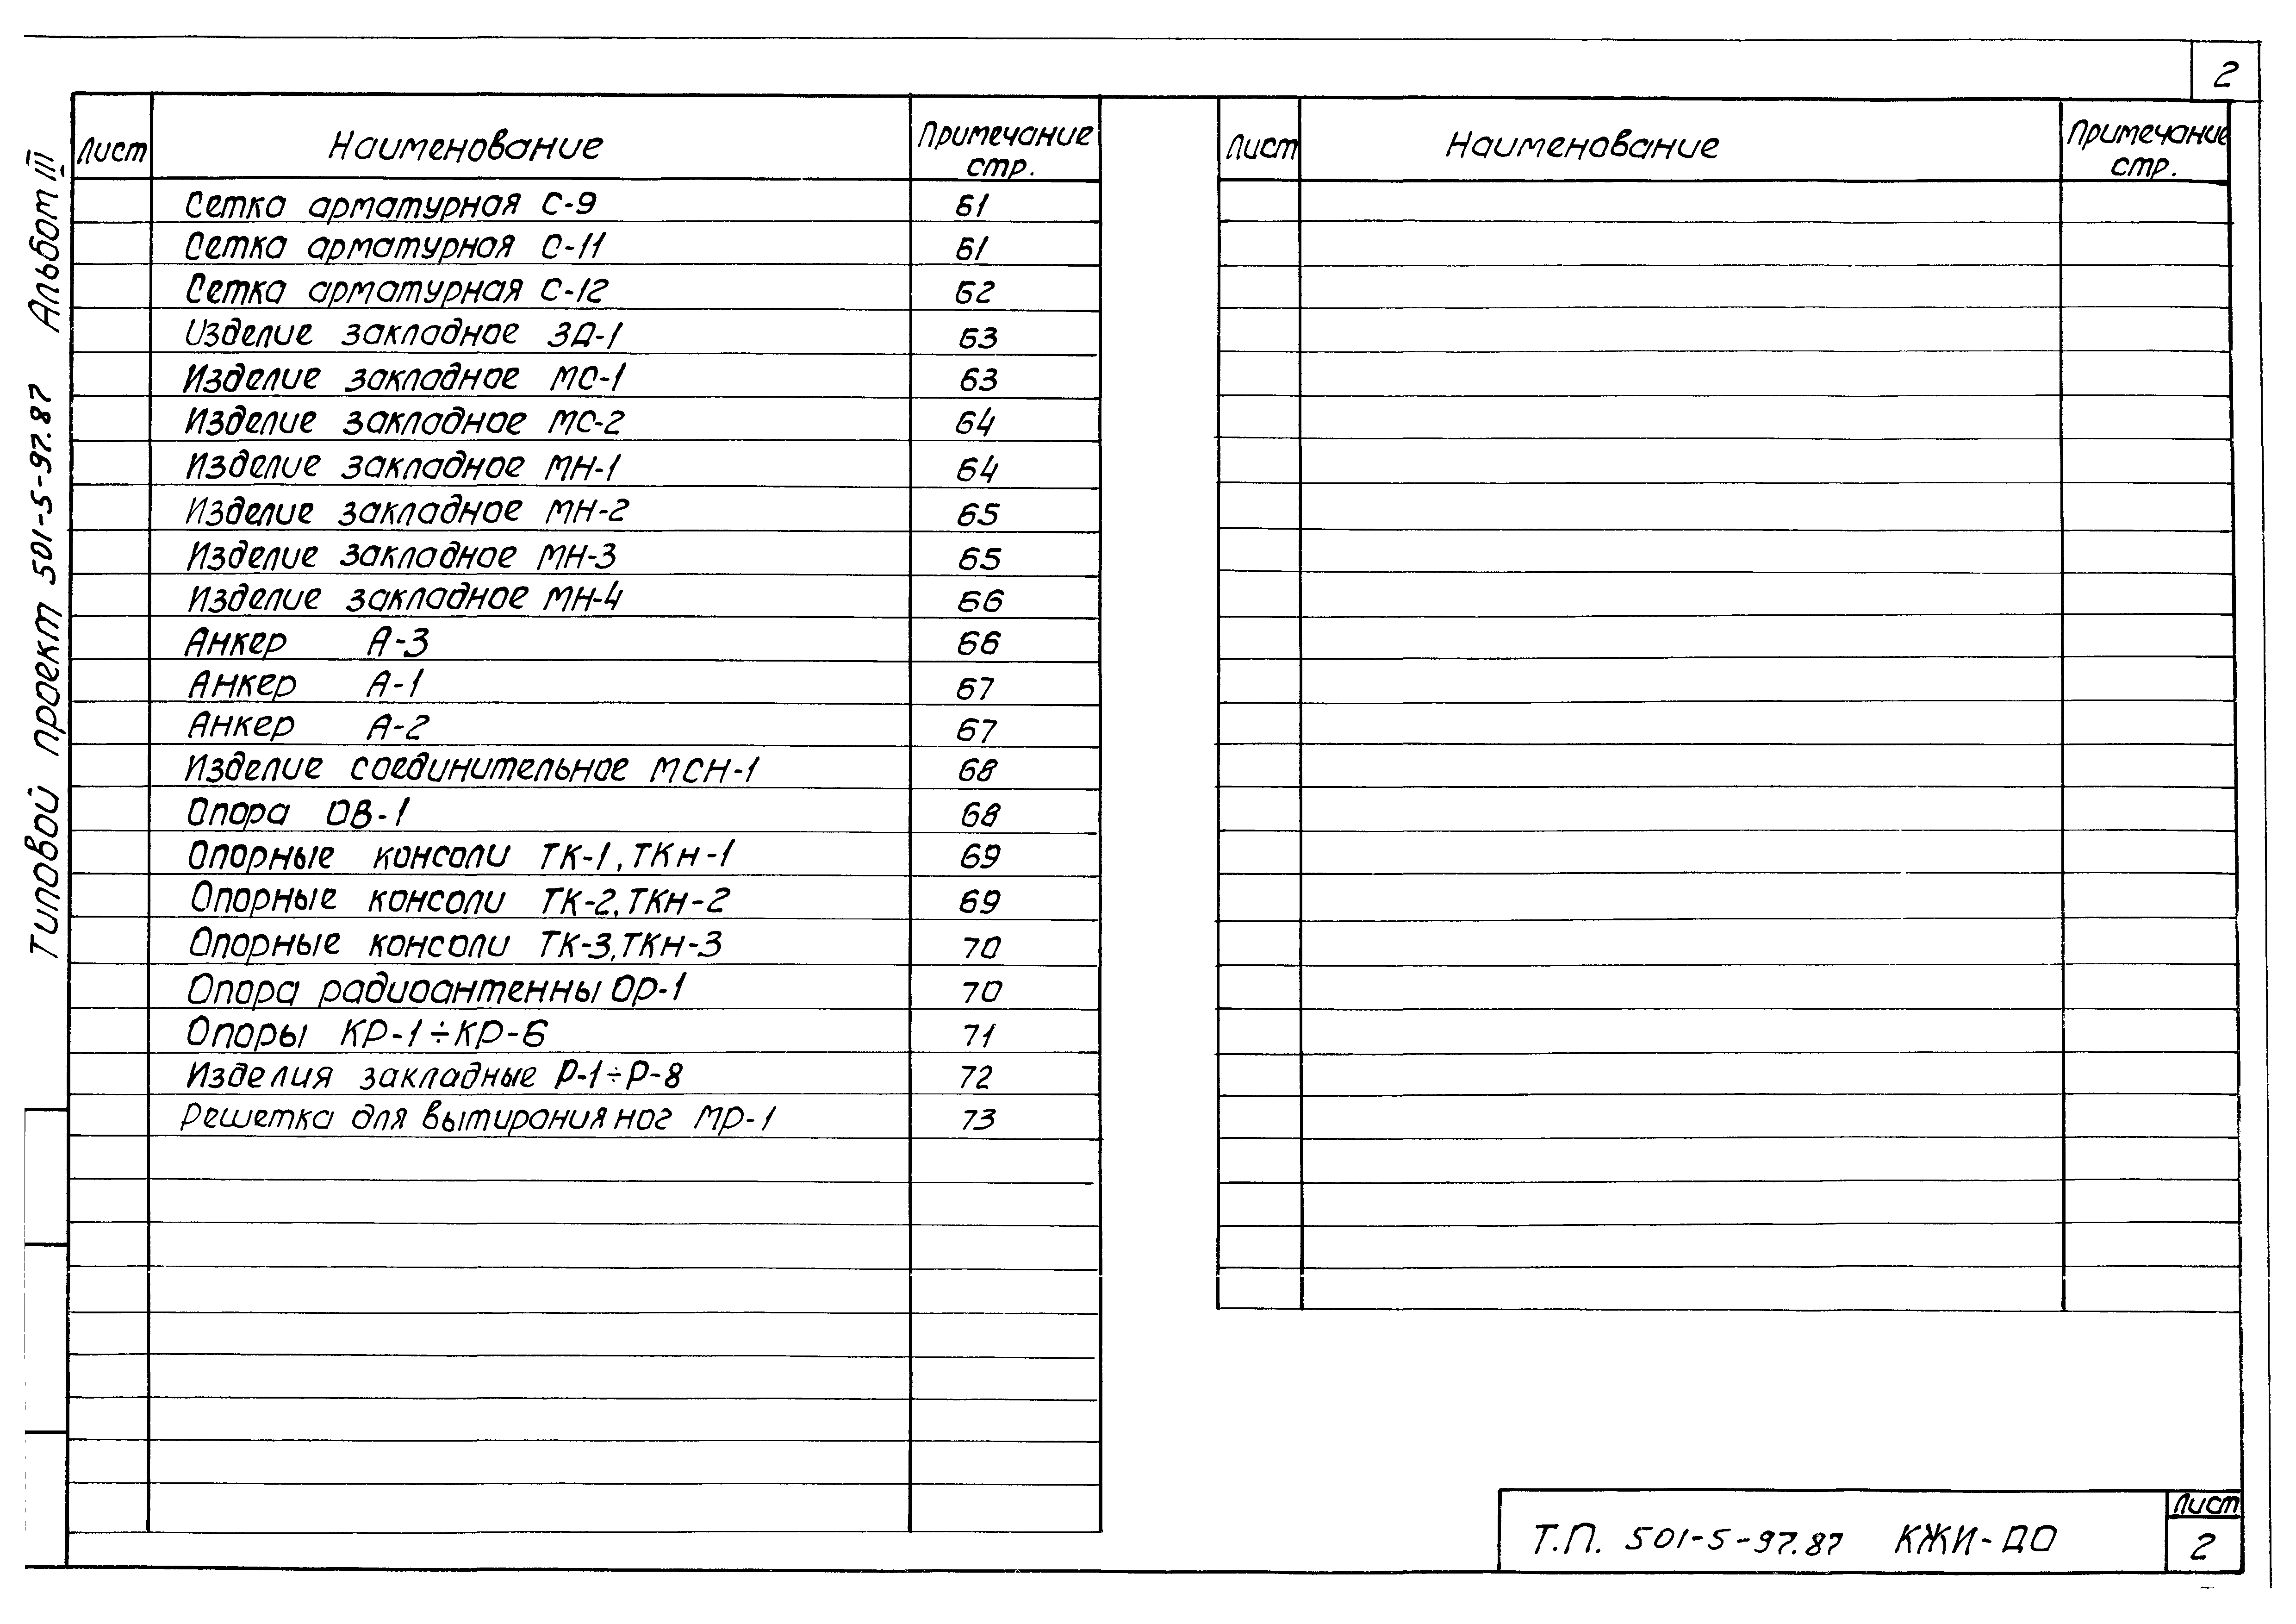 2
Типовой проект 501-5-97.87 Альбом III
Лист Наименование Примечание стр.
Сетка арматурная С-9 61
Сетка арматурная С-11 61
Сетка арматурная С-12 62
Изделие закладное ЗД-1 63
Изделие закладное МС-1 63
Изделие закладное МС-2 64
Изделие закладное МН-1 64
Изделие закладное МН-2 65
Изделие закладное МН-3 65
Изделие закладное МН-4 66
Анкер А-3 66
Анкер А-1 67
Анкер А-2 67
Изделие соединительное МСН-1 68
Опора ОВ-1 68
Опорные консоли ТК-1, ТКн-1 69
Опорные консоли ТК-2, ТКн-2 69
Опорные консоли ТК-3, ТКн-3 70
Опора радиоантенны ОР-1 70
Опоры КР-1÷КР-6 71
Изделия закладные Р-1÷Р-8 72
Решетка для вытирания ног МР-1 73
Лист Наименование Примечание стр.
Т.П. 501-5-97.87 КЖИ-ДО
Лист
2